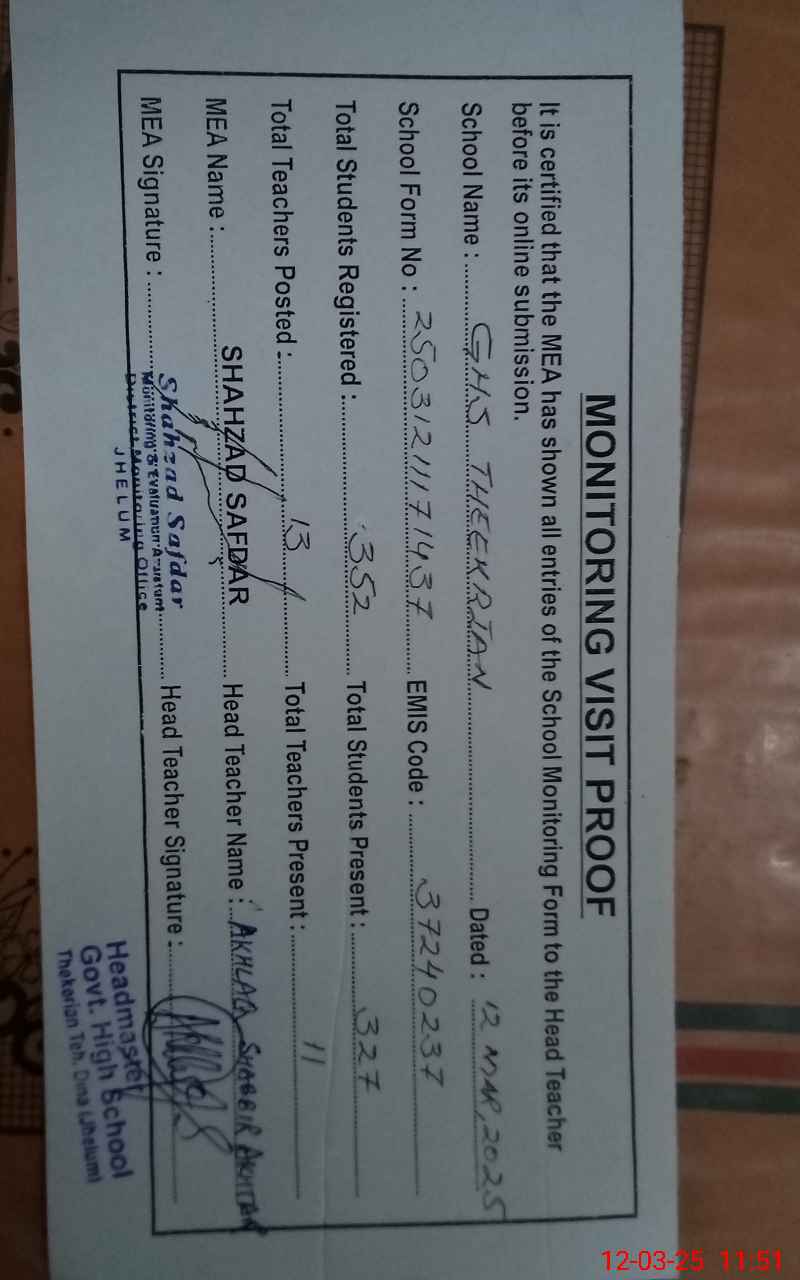 MONITORING VISIT PROOF
It is certified that the MEA has shown all entries of the School Monitoring Form to the Head Teacher
before its online submission.
School Name : GHS THEEKRIAN Dated : 12 MAR, 2025
School Form No : 25031211171437 EMIS Code : 37240237
Total Students Registered : 352 Total Students Present : 327
Total Teachers Posted : 13 Total Teachers Present : 11
MEA Name : SHAHZAD SAFDAR Head Teacher Name : AKHLAQ SHABBIR AKHTAR
MEA Signature : Head Teacher Signature :
Shahzad Safdar
Monitoring & Evaluation Assistant
District Monitoring Office
JHELUM
Headmaster
Govt. High School
Thekerian Teh. Dina (Jhelum)
12-03-25 11:51